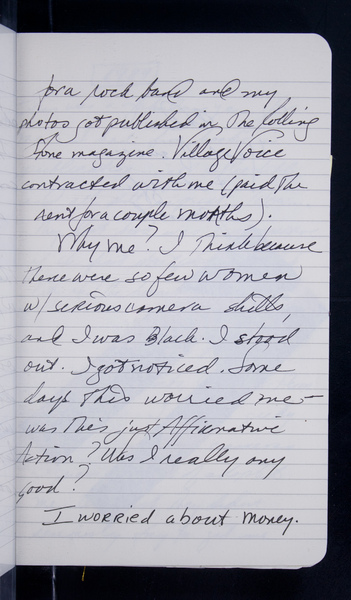 for a rock band and my
photos got published in The Rolling
Stone magazine. Village Voice
contracted with me (paid the
rent for a couple months).
Why me? I think because
there were so few women
w/ serious camera skills,
and I was Black. I stood
out. I got noticed. Some
days this worried me –
was this just Affirmative
Action? Was I really any
good?
I worried about money.